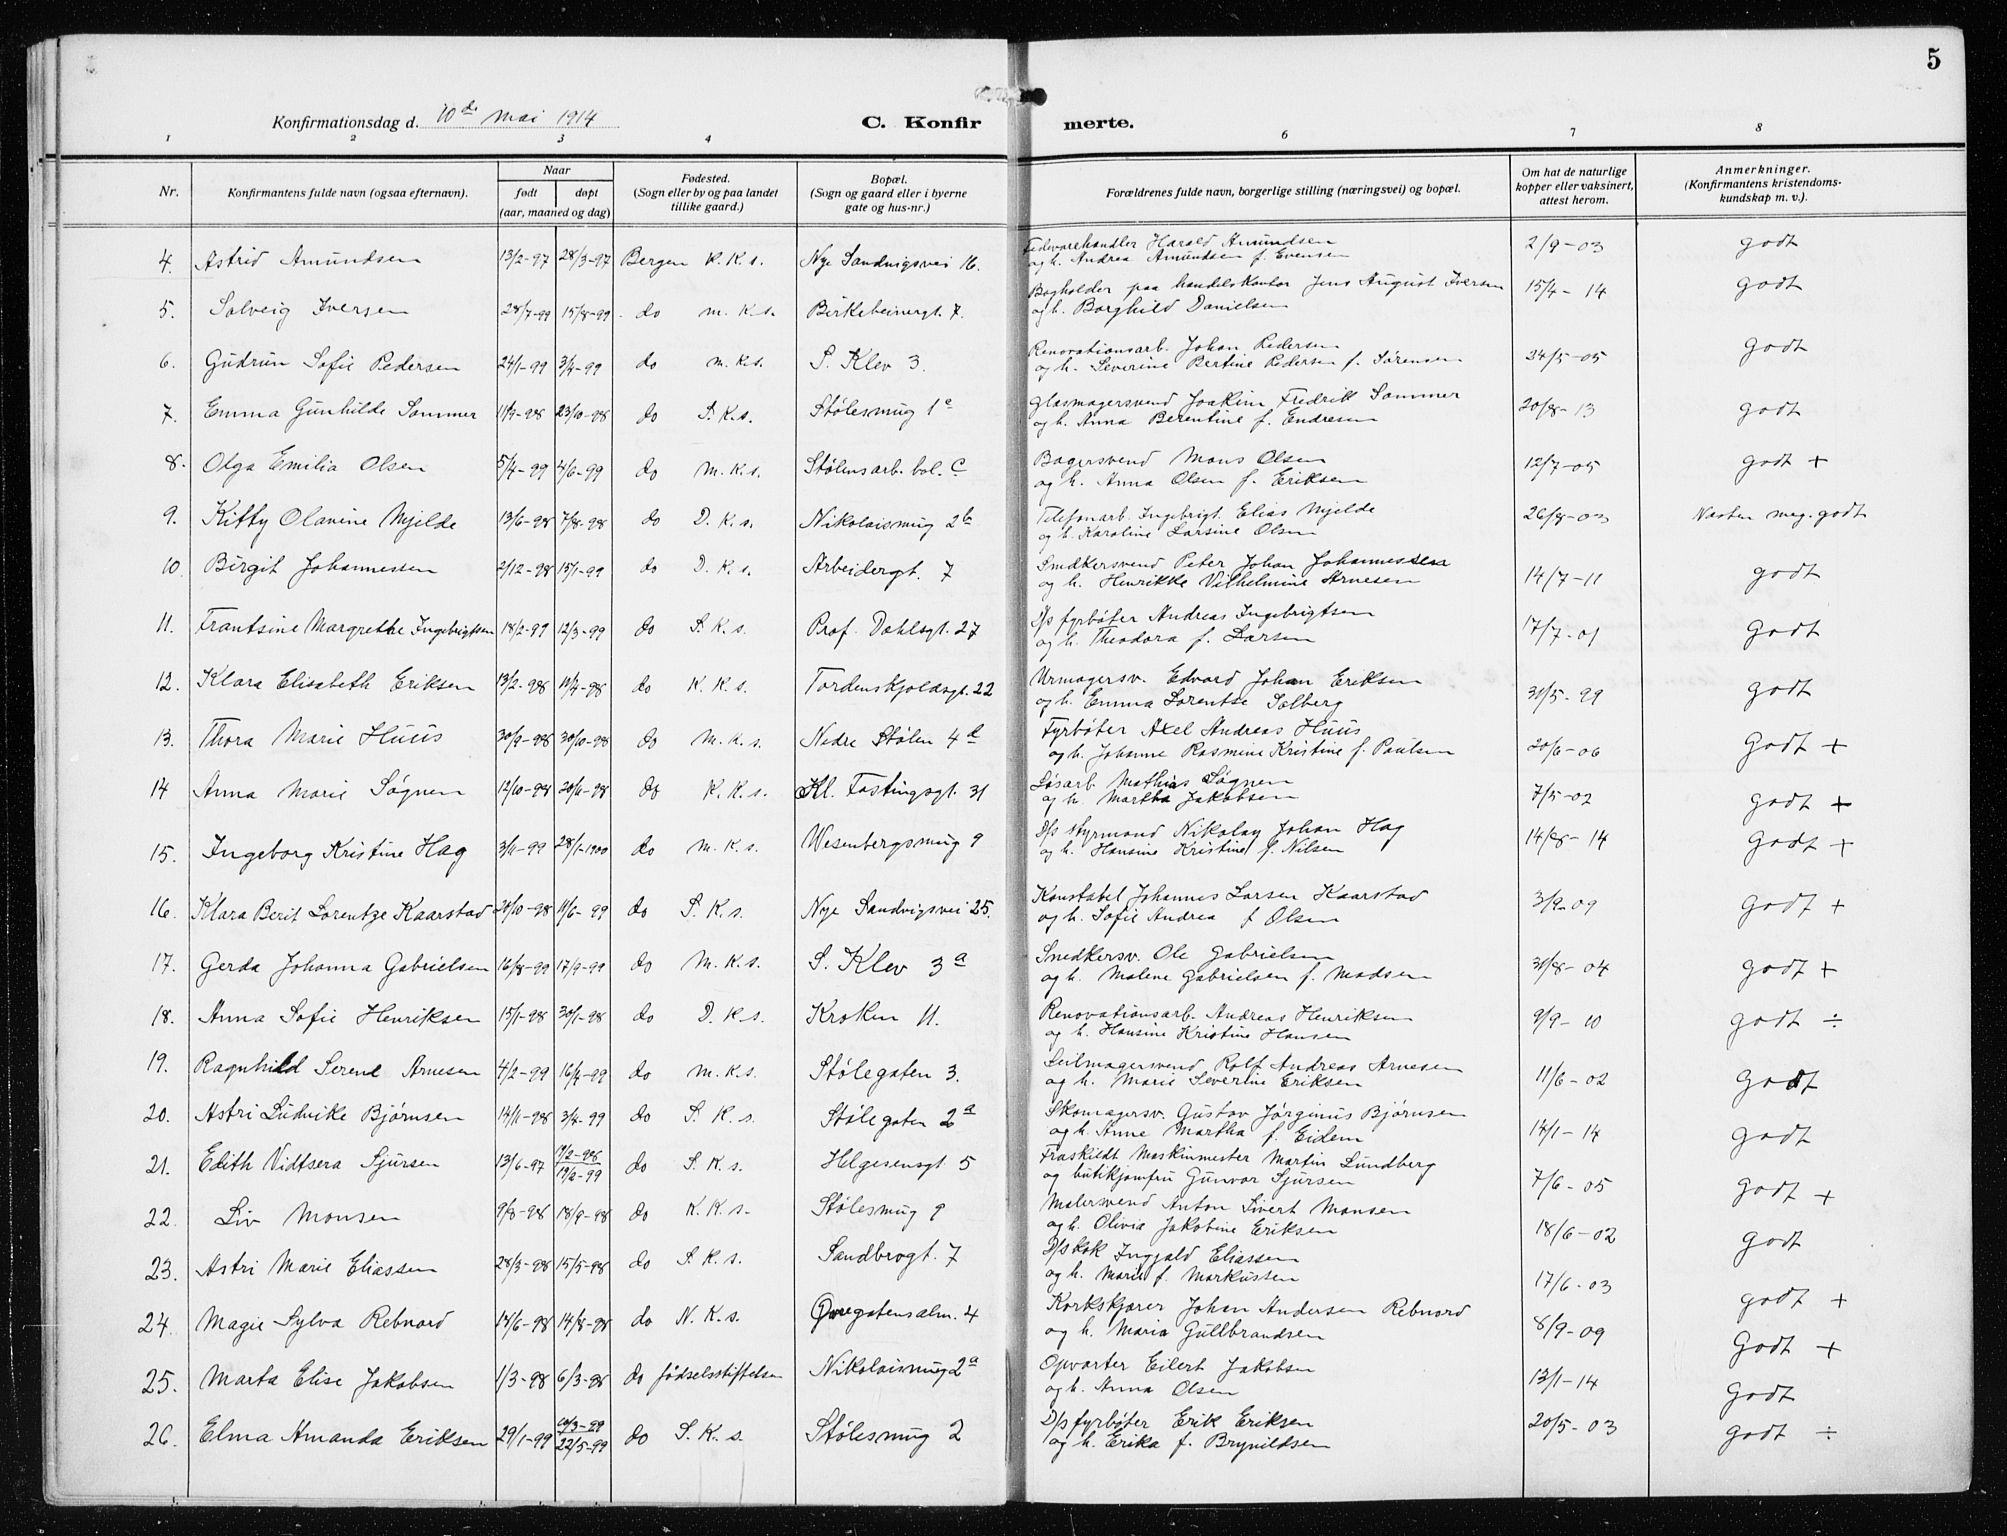 5
Konfirmationsdag d. 10de mai 1914
C. Konfir merte.
1 2 3 4 6 7 8
Nr. Konfirmantens fulde navn (ogsaa efternavn). Naar født døpt (aar, maaned og dag) Fødested. (Sogn eller by og paa landet tillike gaard.) Bopæl. (Sogn og gaard eller i byerne gate og hus-nr.) Forældrenes fulde navn, borgerlige stilling (næringsvei) og bopæl. Om hat de naturlige kopper eller vaksinert, attest herom. Anmerkninger. (Konfirmantens kristendoms- kundskap m. v.).
4. Astrid Amundsen 13/2-97 28/3-97 Bergen K. K. s. Nye Sandvigsvei 16. Fedevarehandler Harald Amundsen 2/9-03 godt
og h. Andrea Amundsen f. Evensen
5. Solveig Iversen 28/7-99 15/8-99 do m. K. s. Birkebeinergt. 7. Bogholder paa handelskontor Jens August Iversen 15/4-14 godt
og h. Borghild Danielsen
6. Gudrun Sofie Pedersen 24/1-99 3/4-99 do m. K. s. S. Klev 3. Renovationsarb. Johan Pedersen 24/5-05 godt
og h. Severine Bertine Pedersen f. Sørensen
7. Emma Gunhilde Sommer 11/9-98 23/10-98 do S. K. s. Stølesmug 1c Glasmagersvend Joakim Fredrik Sommer 20/8-13 godt
og h. Anna Berentine f. Endresen
8. Olga Emilia Olsen 5/4-99 4/6-99 do m. K. s. Stølens arb. bol. C Bagersvend Mons Olsen 12/7-05 godt +
og h. Anna Olsen f. Eriksen
9. Kitty Olavine Mjelde 13/6-98 7/8-98 do D. K. s. Nikolaismug 2b Telefonarb. Ingebrigt Elias Mjelde 26/8-03 Næsten meg. godt
og h. Karoline Larsine Olsen
10. Birgit Johannessen 2/12-98 15/1-99 do D. K. s. Arbeidergt. 7 Snedkersvend Peter Johan Johannessen 14/7-11 godt
og h. Henrikke Vilhelmine Arnesen
11. Frantsine Margrethe Ingebrigtsen 18/2-99 12/3-99 do S. K. s. Prof. Dahlsgt. 27 D/s fyrbøter Andreas Ingebrigtsen 17/7-01 godt
og h. Theodora f. Larsen
12. Klara Elisabeth Eriksen 13/2-98 11/4-98 do K. K. s. Tordenskjoldsgt. 22 Urmagersv. Edvard Johan Eriksen 30/5-99 godt
og h. Emma Lorentse Solberg
13. Thora Marie Huus 30/9-98 30/10-98 do M. K. s. Nedre Stølen 4d Fyrbøter Axel Andreas Huus 20/6-06 godt +
og h. Johanne Rasmine Kristine f. Paulsen
14 Anna Marie Søgnen 12/10-98 20/11-98 do K. K. s. Kl. Fastingsgt. 31 Løsarb. Mathias Søgnen 7/5-02 godt +
og h. Martha Jakobsen
15. Ingeborg Kristine Hag 3/11-99 28/1-1900 do m. K. s. Wesenbergsmug 9 D/s styrmand Nikolay Johan Hag 14/8-14 godt +
og h. Hansine Kristine f. Nilsen
16. Klara Berit Lorentze Kaarstad 20/10-98 11/6-99 do S. K. s. Nye Sandvigsvei 25. Konstabel Johannes Larsen Kaarstad 3/9-09 godt +
og h. Sofie Andrea f Olsen
17. Gerda Johanna Gabrielsen 16/8-99 17/9-99 do M. K. s. S. Klev 3a Snedkersv. Ole Gabrielsen 30/8-04 godt +
og h. Malene Gabrielsen f. Madsen
18. Anna Sofie Henriksen 15/1-98 30/1-98 do D. K. s. Kroken 11. Renovationsarb. Andreas Henriksen 9/9-10 godt ÷
og h. Hansine Kristine Hansen
19. Ragnhild Serene Arnesen 4/2-99 16/4-99 do m. K. s. Stølegaten 3. Seilmagersvend Rolf Andreas Arnesen 11/6-02 godt
og h. Marie Severine Eriksen
20. Astri Ludvike Bjørnsen 14/11-98 3/4-99 do S. K. s. Stølegaten 2a Skomagersv. Gustav Jørginus Bjørnsen 14/1-14 godt
og h. Anne Martha f. Eidem
21. Edith Vidtsera Sjursen 13/6-97 do S. K. s. Helgesensgt 5 Fraskildt Maskinmester Martin Lundberg 7/6-05 godt +
og butikjomfru Gunvor Sjursen
22. Liv Monsen 9/8-98 18/9-98 do K. K. s. Stølesmug 9 Malersvend Anton Sivert Monsen 18/6-02 godt
og h. Olivia Jakobine Eriksen
23. Astri Marie Eliassen 28/3-98 15/5-98 do S. K. s. Sandbrogt. 7 D/s kok Ingjald Eliassen 17/6-03 godt +
og h. Marie f. Markussen
24. Magie Sylva Rebnord 14/6-98 14/8-98 do N. K. s. Øvregatensalm. 4 Korkskjærer Johan Andersen Rebnord 8/9-09 godt +
og h. Maria Gullbrandsen
25. Marta Elise Jakobsen 1/3-98 6/3-98 do fødselsstiftelsen Nikolaismug 2a Opvarter Eilert Jakobsen 13/1-14 godt
og h. Anna Olsen
26. Elma Amanda Eriksen 29/1-99 22/5-99 do S. K. s. Stølesmug 2 D/s fyrbøter Erik Eriksen 20/5-03 godt ÷
og h. Erika f. Brynildsen